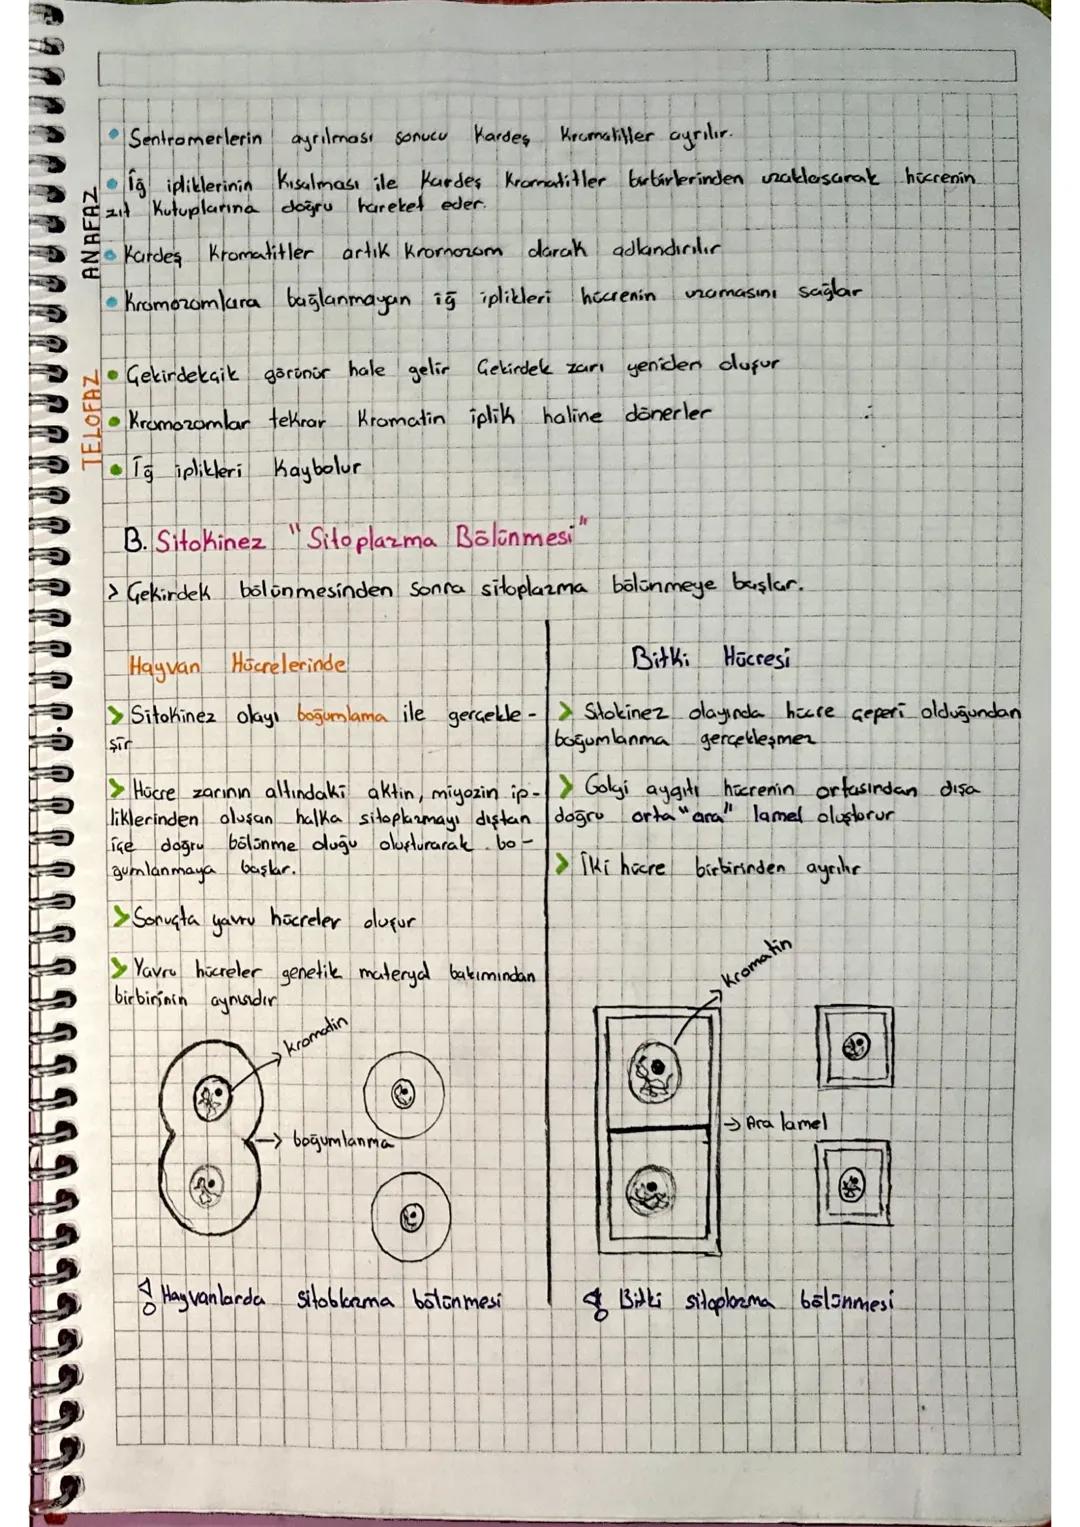 ANAFAZ
• Sentromerlerin ayrılması sonucu Kardeş Kromatitler ayrılır.
• İğ ipliklerinin Kısalması ile Kardeş Kromatitler birbirlerinden uzaklaşarak hücrenin
zıt Kutuplarına doğru hareket eder.
• Kardeş Kromatitler artık Kromozom olarak adlandırılır
• Kromozomlara bağlanmayan iğ iplikleri hücrenin uzamasını sağlar
TELOFAZ
• Çekirdekçik görünür hale gelir Çekirdek zarı yeniden oluşur
• Kromozomlar tekrar Kromatin iplik haline dönerler
• İğ iplikleri Kaybolur
B. Sitokinez "Sitoplazma Bölünmesi"
> Çekirdek bölünmesinden sonra sitoplazma bölünmeye başlar.
Hayvan Hücrelerinde
> Sitokinez olayı boğumlama ile gerçekle-
şir
> Hücre zarının altındaki aktin, miyozin ip-
liklerinden oluşan halka sitoplazmayı dıştan
içe doğru bölünme oluğu oluşturarak bo-
ğumlanmaya başlar.
> Sonuçta yavru hücreler oluşur
> Yavru hücreler genetik materyal bakımından
birbirinin aynısıdır
Kromatin
→ boğumlanma
Hayvanlarda sitoblazma bölünmesi
Bitki Hücresi
> Sitokinez olayında hücre çeperi olduğundan
boğumlanma gerçekleşmez
> Golgi aygıtı hücrenin ortasından dışa
doğru orta "ara" lamel oluşturur
> İki hücre birbirinden ayrılır
Kromatin
→ Ara lamel
Bitki sitoplazma bölünmesi